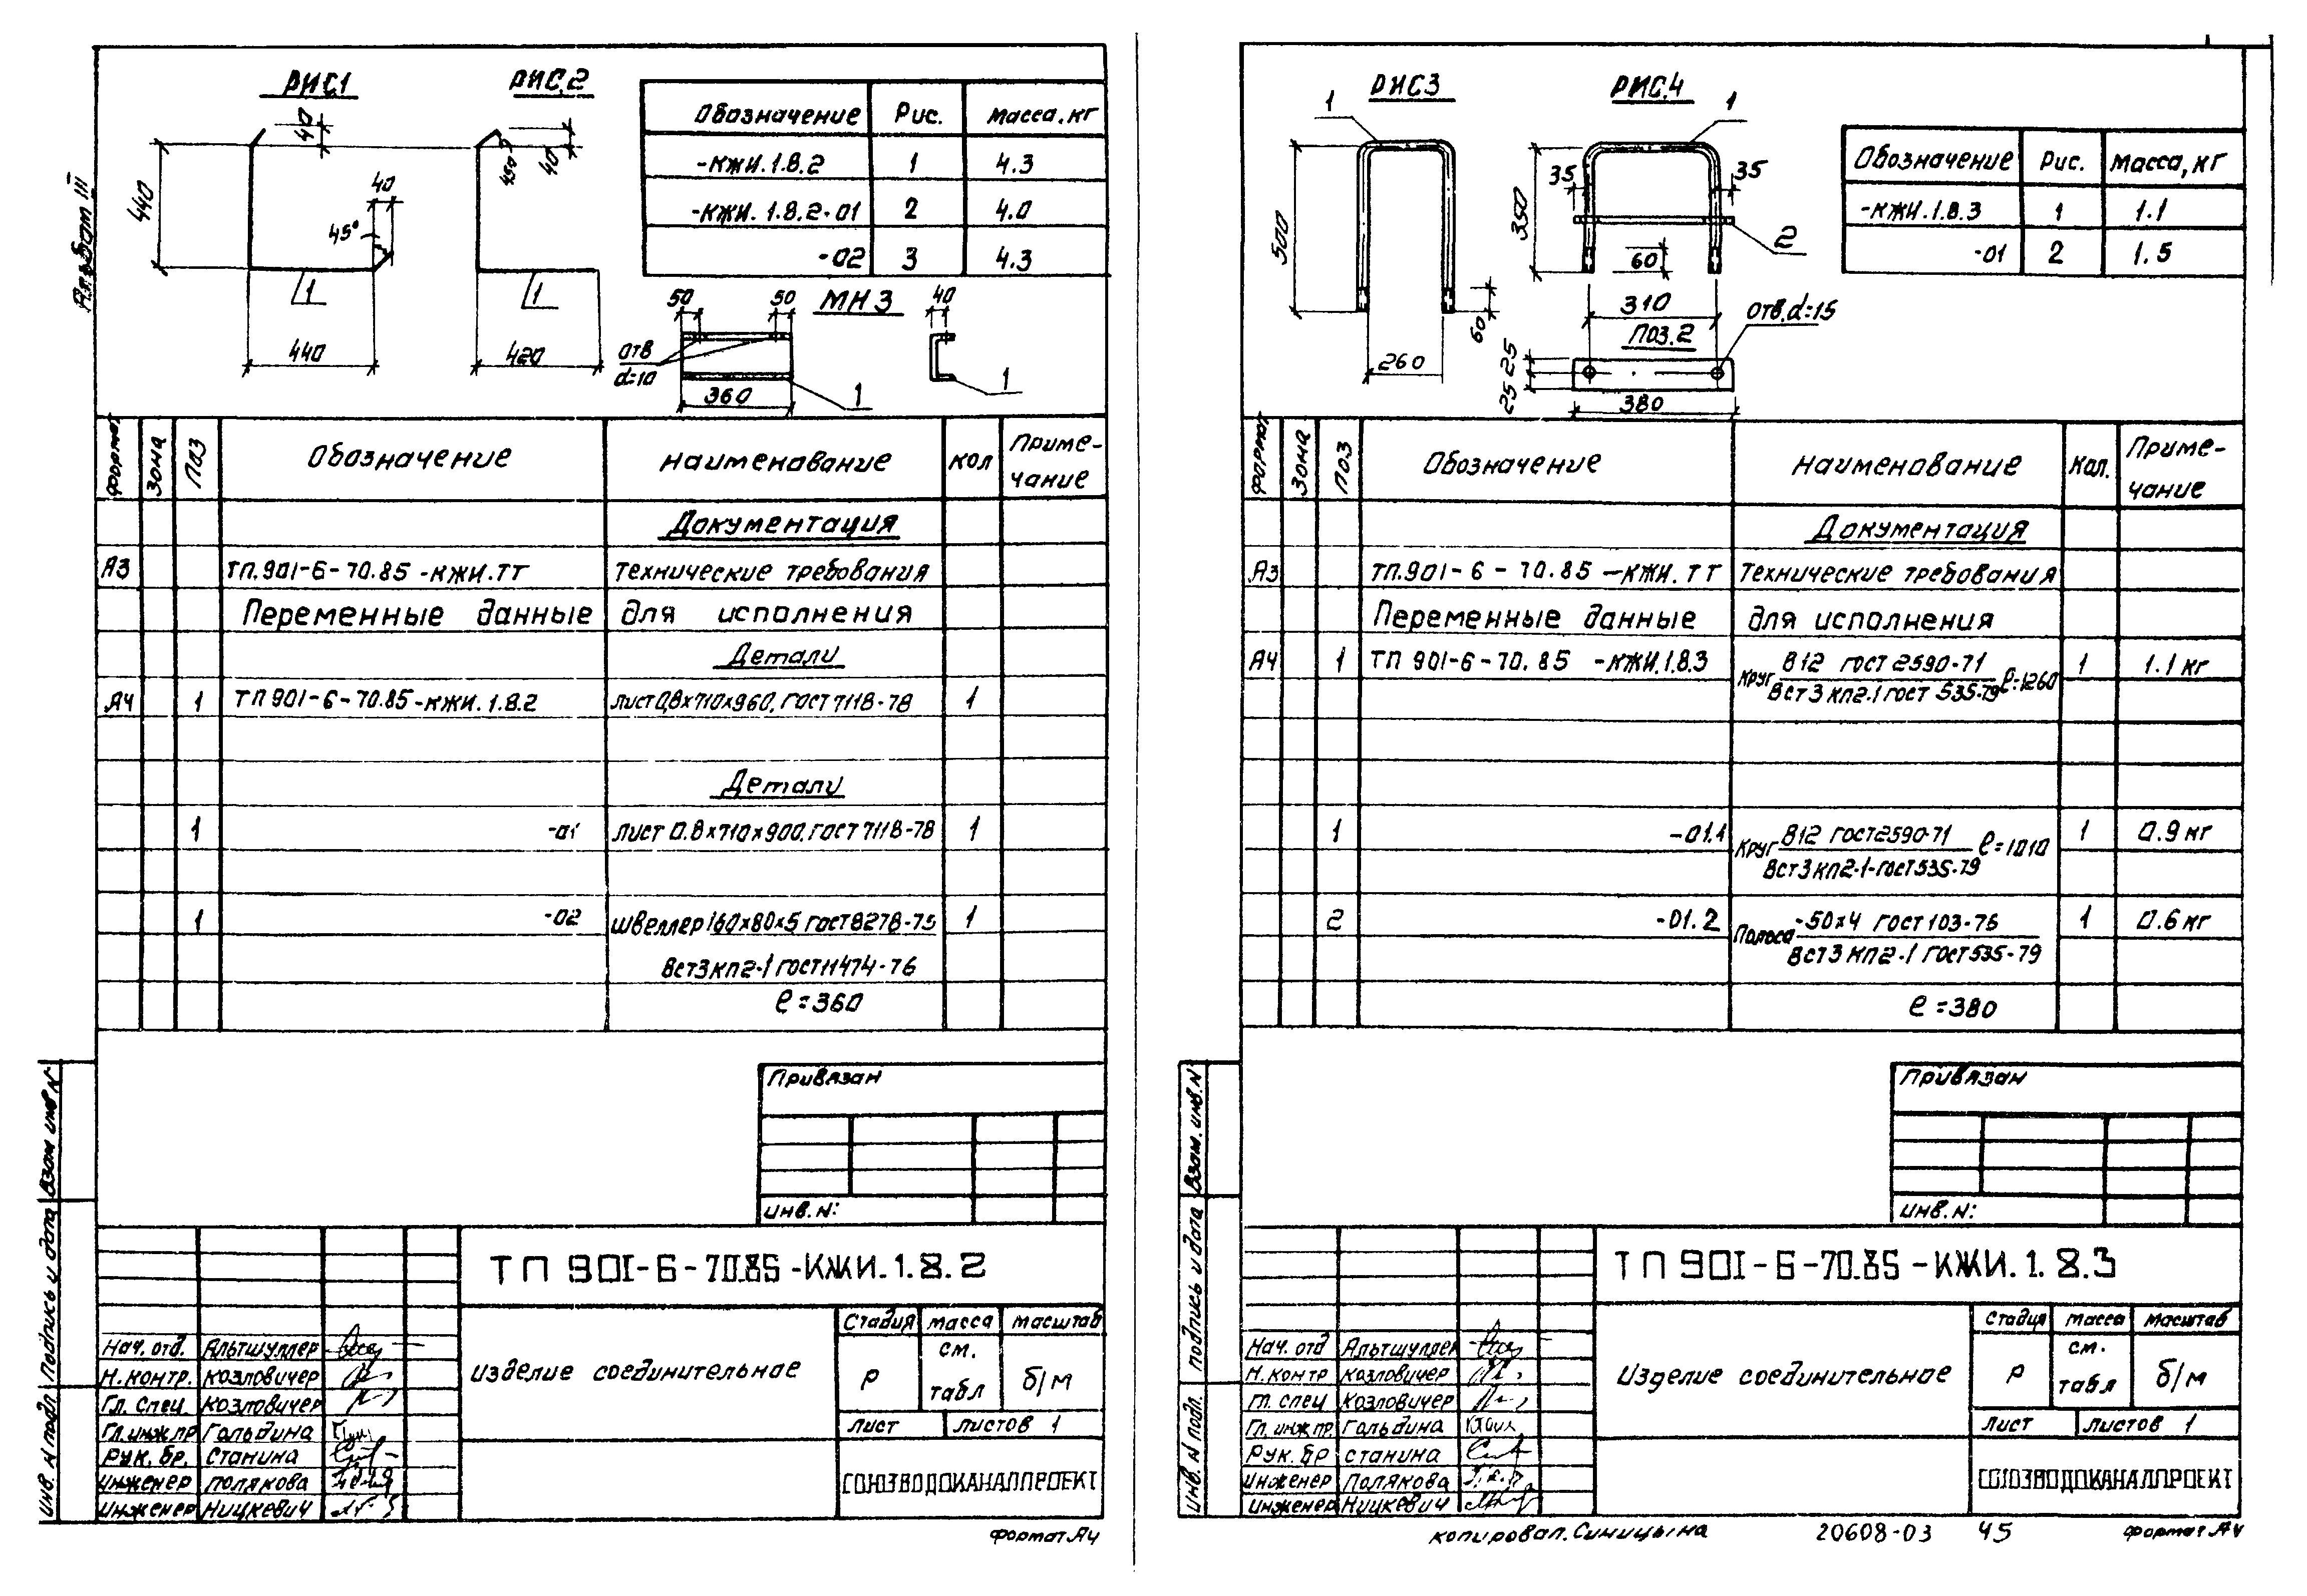 Альбом III
РИС.1
РИС.2
40
440
40
45°
1
440
45°
40
1
420
Обозначение Рис. Масса, кг
-КЖИ.1.8.2 1 4.3
-КЖИ.1.8.2-01 2 4.0
-02 3 4.3
МН3
50 50 40
отв
d=10
360
1
1
Формат Зона Поз Обозначение Наименование Кол Приме-
чание
Документация
А3 ТП.901-6-70.85-КЖИ.ТТ Технические требования
Переменные данные для исполнения
Детали
А4 1 ТП 901-6-70.85-КЖИ.1.8.2 Лист 0,8х710х960, ГОСТ 7118-78 1
Детали
1 -01 Лист 0.8х710х900, ГОСТ 7118-78 1
1 -02 Швеллер 160х80х5 ГОСТ 8278-75 1
ВСт3кп2-1 ГОСТ 11474-76
ℓ=360
Привязан
Инв.N:
ТП 901-6-70.85-КЖИ.1.8.2
Нач. отд. Альтшуллер
Н.контр. Козловичер
Гл. спец. Козловичер
Гл.инж.пр Гольдина
Рук. бр. Станина
Инженер Полякова
Инженер Ницкевич
Изделие соединительное
Стадия Масса Масштаб
Р см.
табл б/м
Лист Листов 1
СОЮЗВОДОКАНАЛПРОЕКТ
Инв. N подл Подпись и дата Взам инв.N
Формат А4
РИС3
1
500
60
260
РИС.4
1
35
35
350
60
2
310
отв. d=15
ПОЗ.2
25
25
380
Обозначение Рис. Масса, кг
-КЖИ.1.8.3 1 1.1
-01 2 1.5
Формат Зона Поз Обозначение Наименование Кол. Приме-
чание
Документация
А3 ТП.901-6-70.85-КЖИ.ТТ Технические требования
Переменные данные для исполнения
А4 1 ТП 901-6-70.85 -КЖИ.1.8.3 Круг В12 ГОСТ 2590-71 1 1.1 кг
ВСт3кп2-1 ГОСТ 535-79 ℓ=1260
1 -01.1 Круг В12 ГОСТ 2590-71 ℓ=1010 1 0.9 кг
ВСт3кп2-1-ГОСТ 535-79
2 -01.2 Полоса -50х4 ГОСТ 103-76 1 0.6 кг
ВСт3кп2-1 ГОСТ 535-79
ℓ=380
Привязан
Инв. N:
ТП 901-6-70.85-КЖИ.1.8.3
Нач. отд Альтшуллер
Н. контр Козловичер
Гл. спец Козловичер
Гл. инж.пр. Гольдина
Рук. бр Станина
Инженер Полякова
Инженер Ницкевич
Изделие соединительное
Стадия Масса Масштаб
Р см.
табл б/м
Лист Листов 1
СОЮЗВОДОКАНАЛПРОЕКТ
Инв. N подл. Подпись и дата Взам. инв.N
Копировал. Синицына 20608-03 45 Формат А4